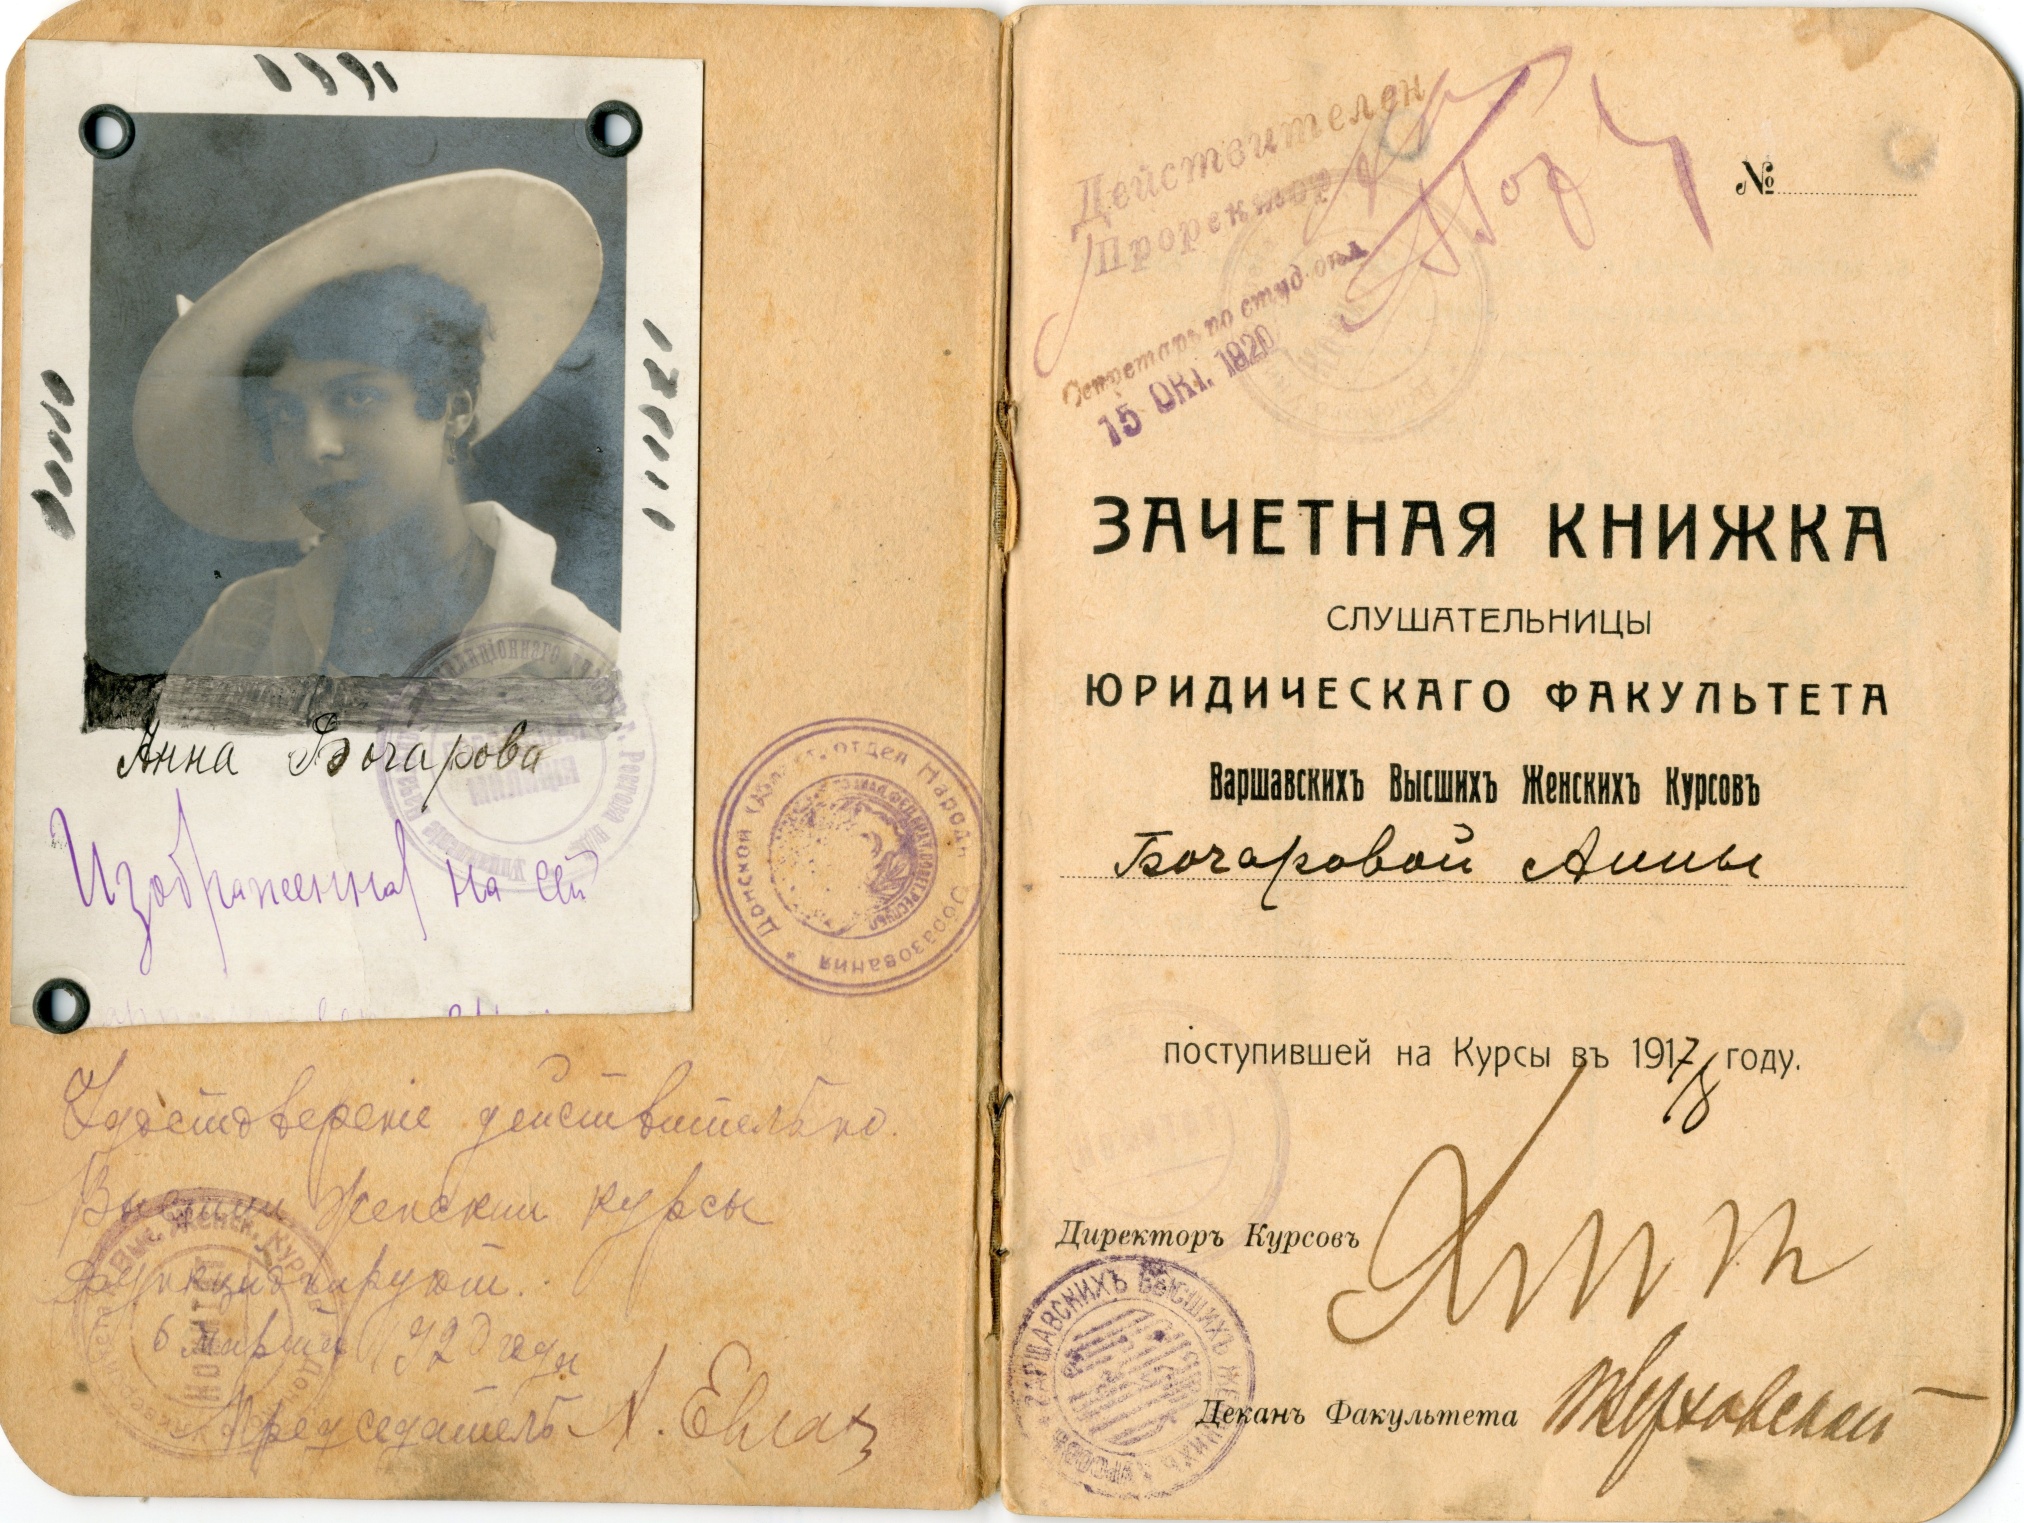 Анна Бочарова
Изображенная на сей
Донской Област. отдел Народн. Образования
Удостоверенiе действительно.
Высшии Женскии курсы
функционируют.
6 марта 1920 года
Председатель
Действителен
Проректор
Секретарь по студ. отд.
15 ОКТ. 1920
№
ЗАЧЕТНАЯ КНИЖКА
СЛУШАТЕЛЬНИЦЫ
ЮРИДИЧЕСКАГО ФАКУЛЬТЕТА
Варшавскихъ Высшихъ Женскихъ Курсовъ
Бочаровой Анны
поступившей на Курсы въ 1917/8 году.
Директоръ Курсовъ
ВАРШАВСКИХЪ ВЫСШИХЪ ЖЕНСКИХЪ КУРСОВЪ
Деканъ Факультета